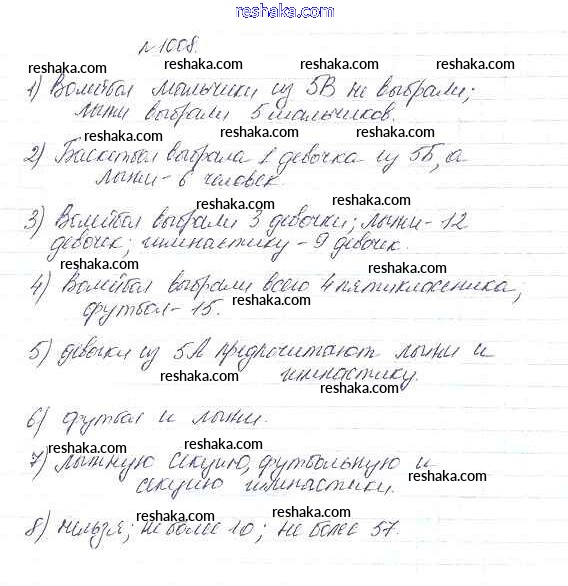 reshaka.com
№1008.
reshaka.com reshaka.com reshaka.com
1) Волейбол мальчики из 5В не выбрали;
лыжи выбрали 5 мальчиков.
reshaka.com reshaka.com
2) Баскетбол выбрала 1 девочка из 5Б, а
лыжи - 6 человек.
reshaka.com
reshaka.com
3) Волейбол выбрали 3 девочки; лыжи - 12
девочек; гимнастику - 9 девочек.
reshaka.com
reshaka.com reshaka.com
4) Волейбол выбрали всего 4 пятиклассника;
футбол - 15.
reshaka.com
5) девочки из 5А предпочитают лыжи и
гимнастику.
reshaka.com reshaka.com
6) футбол и лыжи.
reshaka.com reshaka.com
7) лыжную секцию, футбольную и
секцию гимнастики.
reshaka.com reshaka.com
8) нельзя; не более 10; не более 57.
reshaka.com reshaka.com